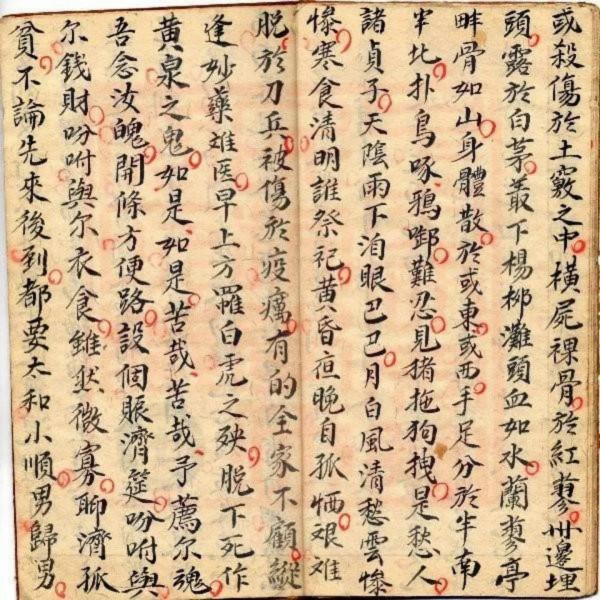 或殺傷於土竅之中橫屍裸骨於紅蓼州邊埋
頭露於白茅叢下楊柳灘頭血如水蘭蓼亭
畔骨如山身體散於或東或西手足分於半南
半北扑鳥啄鴉啣難忍見猪拖狗拽是愁人
諸貞子天陰雨下泪眼巴巴月白風清愁雲慘
慘寒食清明誰祭祀黃昏夜晚自孤恓艰难
脫於刀兵被傷於疫癘有的全家不顧縱
逢妙藥难医早上方羅白虎之殃脫下死作
黃泉之鬼如是如是苦哉苦哉予薦尔魂
吾念汝魄開條方便路設個賑濟筵吩咐與
尔錢財吩咐與尔衣食雖然微寡聊濟孤
貧不論先來後到都要太和小順男歸男